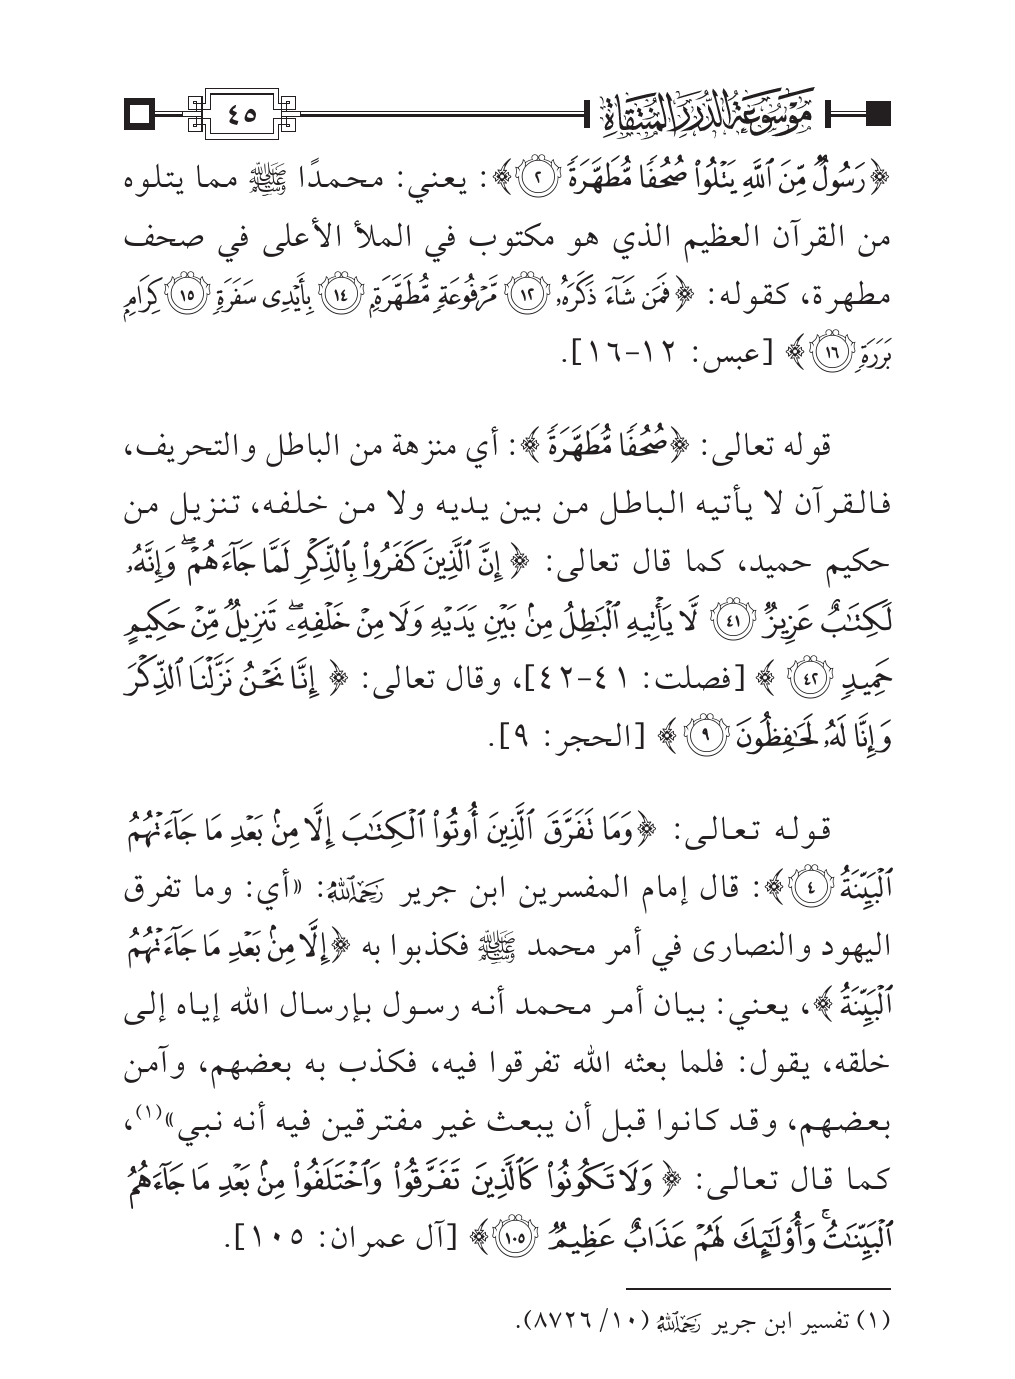 موسوعة الدرر المنتقاة ٤٥
﴿رَسُولٌ مِّنَ ٱللَّهِ يَتْلُوا۟ صُحُفًا مُّطَهَّرَةً ٢﴾: يعني: محمدًا ﷺ مما يتلوه
من القرآن العظيم الذي هو مكتوب في الملأ الأعلى في صحف
مطهرة، كقوله: ﴿فَمَن شَآءَ ذَكَرَهُۥ ١٢ مَّرْفُوعَةٍ مُّطَهَّرَةٍۭ ١٤ بِأَيْدِى سَفَرَةٍ ١٥ كِرَامٍۭ
بَرَرَةٍ ١٦﴾ [عبس: ١٢-١٦].
قوله تعالى: ﴿صُحُفًا مُّطَهَّرَةً﴾: أي منزهة من الباطل والتحريف،
فالقرآن لا يأتيه الباطل من بين يديه ولا من خلفه، تنزيل من
حكيم حميد، كما قال تعالى: ﴿إِنَّ ٱلَّذِينَ كَفَرُوا۟ بِٱلذِّكْرِ لَمَّا جَآءَهُمْ ۖ وَإِنَّهُۥ
لَكِتَـٰبٌ عَزِيزٌ ٤١ لَّا يَأْتِيهِ ٱلْبَـٰطِلُ مِنۢ بَيْنِ يَدَيْهِ وَلَا مِنْ خَلْفِهِۦ ۖ تَنزِيلٌ مِّنْ حَكِيمٍ
حَمِيدٍ ٤٢﴾ [فصلت: ٤١-٤٢]، وقال تعالى: ﴿إِنَّا نَحْنُ نَزَّلْنَا ٱلذِّكْرَ
وَإِنَّا لَهُۥ لَحَـٰفِظُونَ ٩﴾ [الحجر: ٩].
قوله تعالى: ﴿وَمَا تَفَرَّقَ ٱلَّذِينَ أُوتُوا۟ ٱلْكِتَـٰبَ إِلَّا مِنۢ بَعْدِ مَا جَآءَتْهُمُ
ٱلْبَيِّنَةُ ٤﴾: قال إمام المفسرين ابن جرير رَحِمَهُ ٱللَّهُ: «أي: وما تفرق
اليهود والنصارى في أمر محمد ﷺ فكذبوا به ﴿إِلَّا مِنۢ بَعْدِ مَا جَآءَتْهُمُ
ٱلْبَيِّنَةُ﴾، يعني: بيان أمر محمد أنه رسول بإرسال الله إياه إلى
خلقه، يقول: فلما بعثه الله تفرقوا فيه، فكذب به بعضهم، وآمن
بعضهم، وقد كانوا قبل أن يبعث غير مفترقين فيه أنه نبي»(١)،
كما قال تعالى: ﴿وَلَا تَكُونُوا۟ كَٱلَّذِينَ تَفَرَّقُوا۟ وَٱخْتَلَفُوا۟ مِنۢ بَعْدِ مَا جَآءَهُمُ
ٱلْبَيِّنَـٰتُ ۚ وَأُو۟لَـٰٓئِكَ لَهُمْ عَذَابٌ عَظِيمٌ ١٠٥﴾ [آل عمران: ١٠٥].
(١) تفسير ابن جرير رَحِمَهُ ٱللَّهُ (١٠/ ٨٧٢٦).